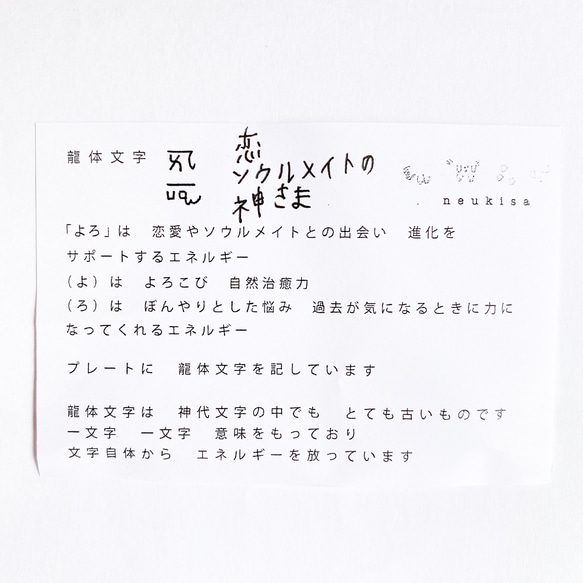 龍体文字
恋
ソウルメイトの
神さま
neukisa
「よろ」は 恋愛やソウルメイトとの出会い 進化を
サポートするエネルギー
（よ）は よろこび 自然治癒力
（ろ）は ぼんやりとした悩み 過去が気になるときに力に
なってくれるエネルギー
プレートに 龍体文字を記しています
龍体文字は 神代文字の中でも とても古いものです
一文字 一文字 意味をもっており
文字自体から エネルギーを放っています